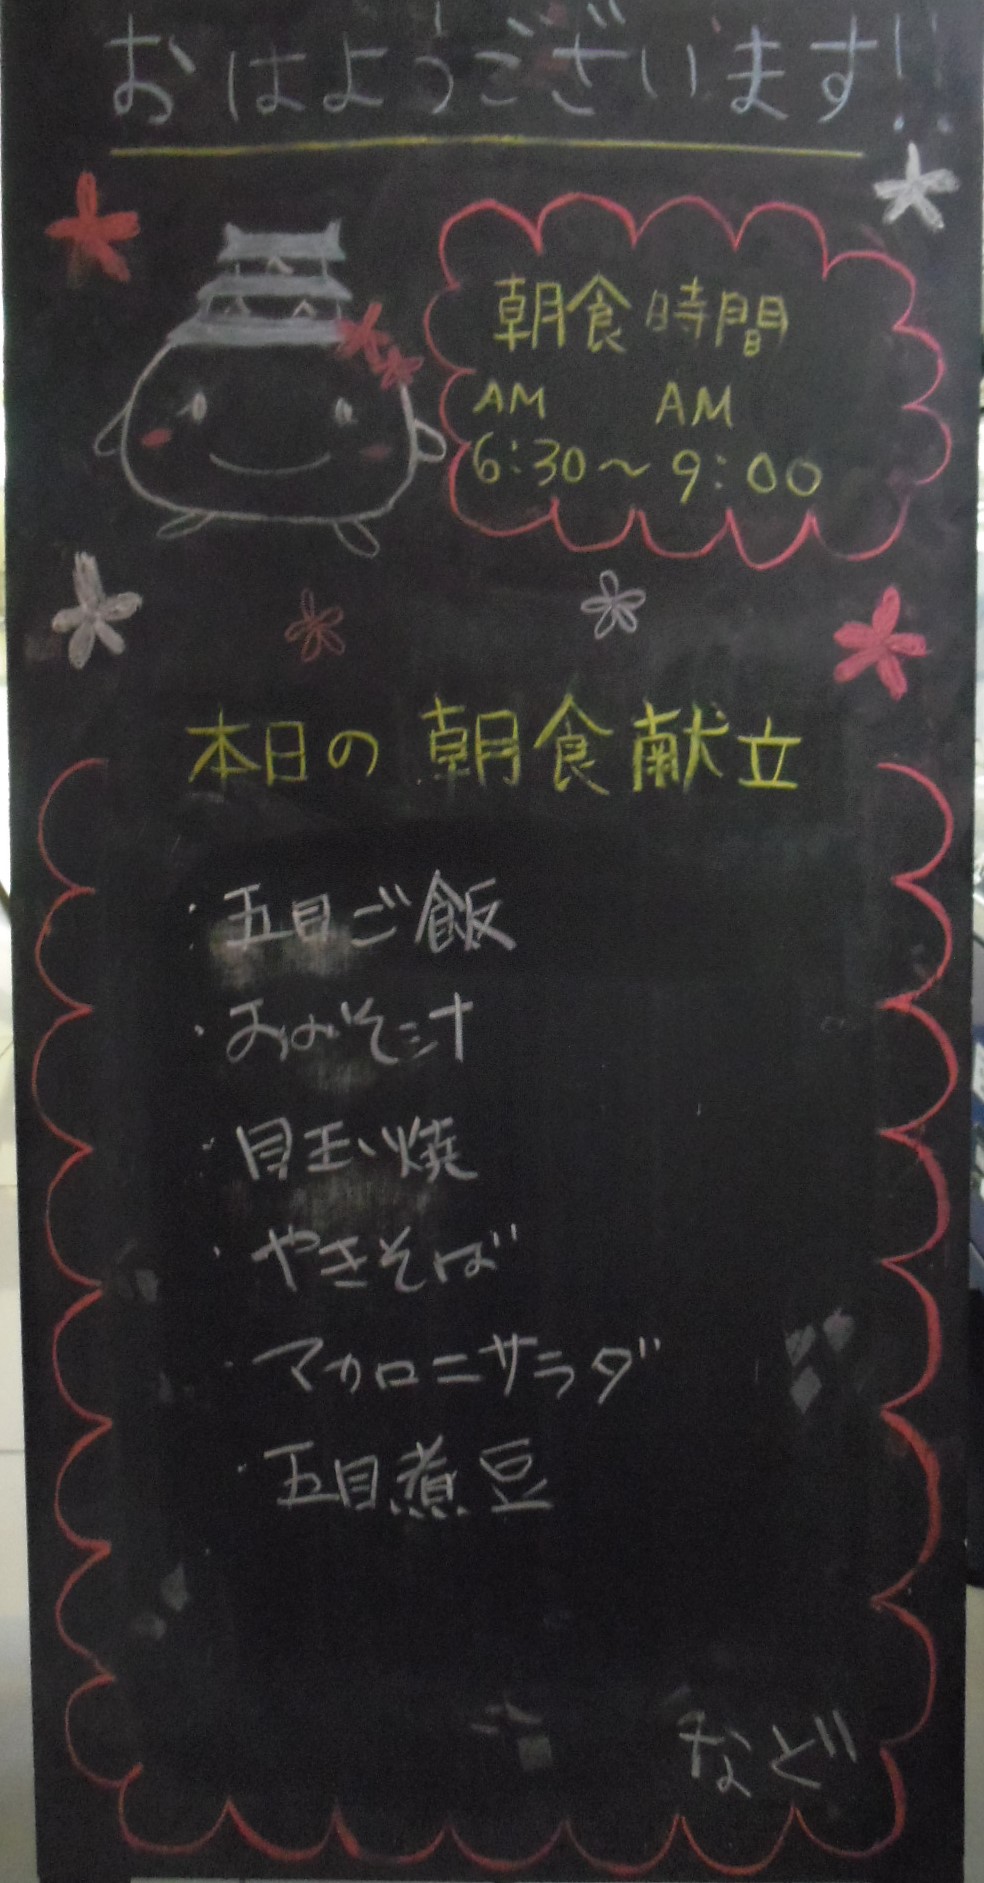 おはようございます!!
朝食時間
AM AM
6:30～9:00
本日の朝食献立
・五目ご飯
・おみそ汁
・目玉焼
・やきそば
・マカロニサラダ
・五目煮豆
など